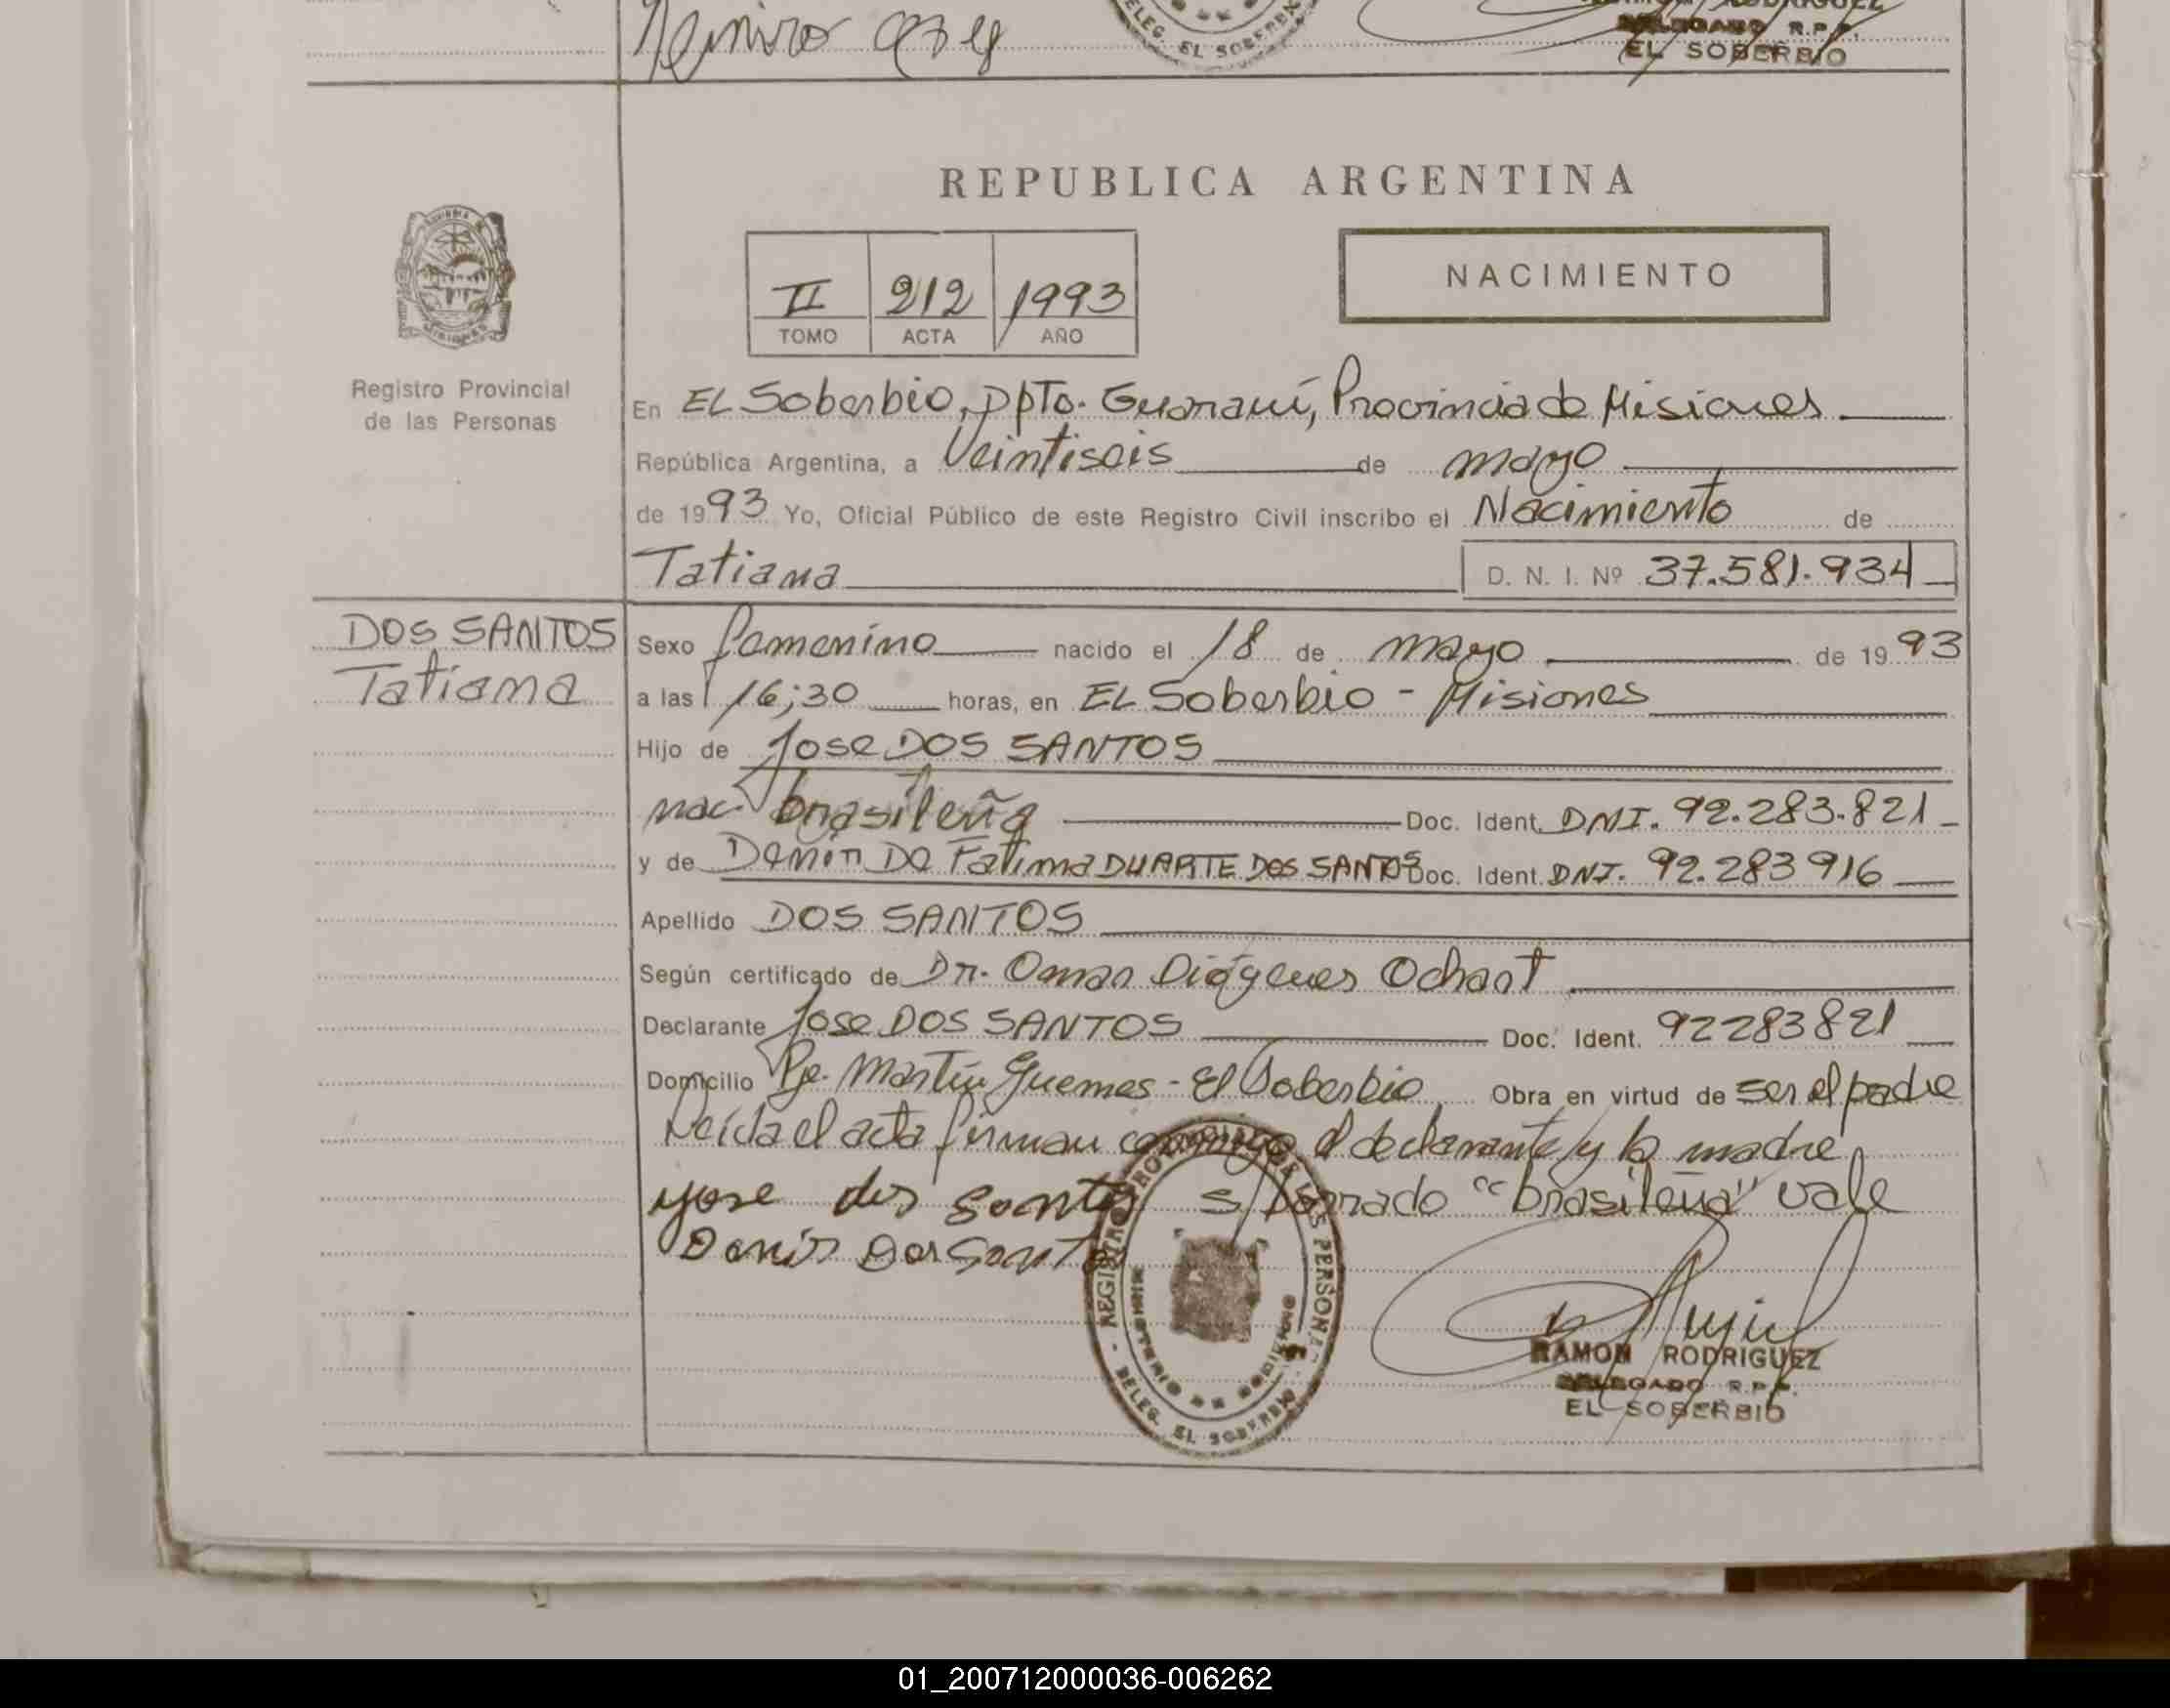 Ramiro
DELEG. EL SOBERBIO
RODRIGUEZ
DELEGADO R.P.P.
EL SOBERBIO
REPUBLICA ARGENTINA
NACIMIENTO
II 212 1993
TOMO ACTA AÑO
Registro Provincial
de las Personas
En EL Soberbio, Dpto. Guaraní, Provincia de Misiones
República Argentina, a Veintiseis de mayo
de 1993 Yo, Oficial Público de este Registro Civil inscribo el Nacimiento de
Tatiana D. N. I. Nº 37.581.934
DOS SANTOS
Tatiana
Sexo femenino nacido el 18 de mayo de 1993
a las 16;30 horas, en EL Soberbio - Misiones
Hijo de Jose DOS SANTOS
nac. brasileña Doc. Ident. DNI. 92.283.821
y de De Fatima DUARTE DOS SANTOS Doc. Ident. DNI. 92.283916
Apellido DOS SANTOS
Según certificado de Dr. Omar Diógenes Ochart
Declarante Jose DOS SANTOS Doc. Ident. 92283821
Domicilio Pje. Martín Guemes - El Soberbio Obra en virtud de ser el padre
Leída el acta firman conmigo el declarante y la madre
Jose dos Santos s/borrado "brasileña" vale
Denir Dos Santos
REGISTRO PROVINCIAL DE LAS PERSONAS
MINISTERIO DE GOBIERNO
DELEG. EL SOBERBIO
RAMON RODRIGUEZ
DELEGADO R.P.P.
EL SOBERBIO
01_200712000036-006262